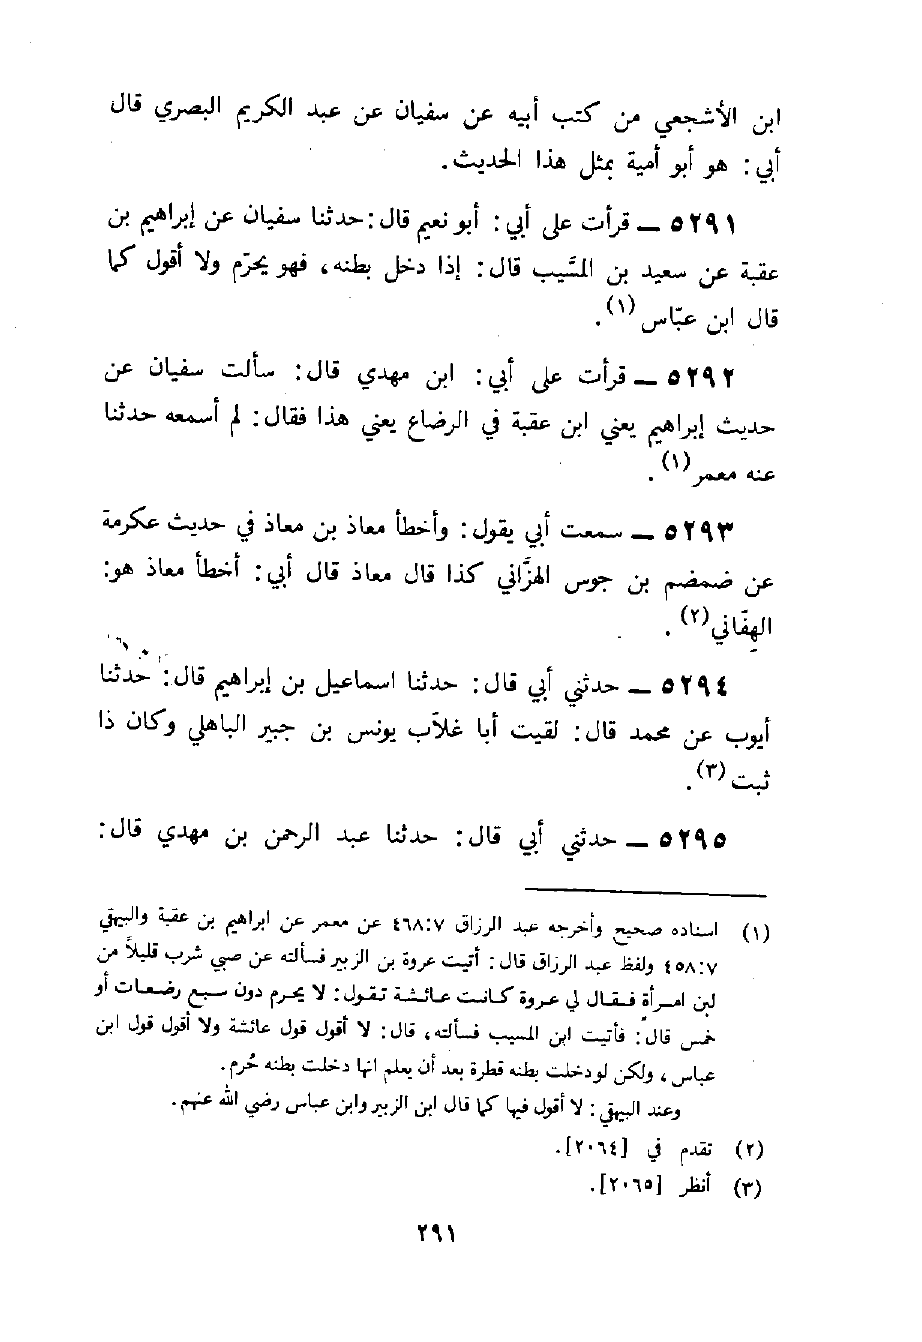 ابن الأشجعي من كتب أبيه عن سفيان عن عبد الكريم البصري قال
أبي: هو أبو أمية بمثل هذا الحديث.
٥٢٩١ ــ قرأت على أبي: أبو نعيم قال: حدثنا سفيان عن إبراهيم بن
عقبة عن سعيد بن المسَّيب قال: إذا دخل بطنه، فهو يحرّم ولا أقول كما
قال ابن عبّاس (١).
٥٢٩٢ ــ قرأت على أبي: ابن مهدي قال: سألت سفيان عن
حديث إبراهيم يعني ابن عقبة في الرضاع يعني هذا فقال: لم أسمعه حدثنا
عنه معمر (١).
٥٢٩٣ ــ سمعت أبي يقول: وأخطأ معاذ بن معاذ في حديث عكرمة
عن ضمضم بن جوس الهزَّاني كذا قال معاذ قال أبي: أخطأ معاذ هو:
الهفّاني (٢).
٥٢٩٤ ــ حدثني أبي قال: حدثنا اسماعيل بن إبراهيم قال: حدثنا
أيوب عن محمد قال: لقيت أبا غلاَّب يونس بن جبير الباهلي وكان ذا
ثبت (٣).
٥٢٩٥ ــ حدثني أبي قال: حدثنا عبد الرحمن بن مهدي قال:
(١) اسناده صحيح وأخرجه عبد الرزاق ٤٦٨:٧ عن معمر عن ابراهيم بن عقبة والبيهقي
٤٥٨:٧ ولفظ عبد الرزاق قال: أتيت عروة بن الزبير فسألته عن صبي شرب قليلاً من
لبن امرأة فقال لي عروة كانت عائشة تقول: لا يحرم دون سبع رضعات أو
خمس قال: فأتيت ابن المسيب فسألته، قال: لا أقول قول عائشة ولا أقول قول ابن
عباس، ولكن لو دخلت بطنه قطرة بعد أن يعلم انها دخلت بطنه حُرم.
وعند البيهقي: لا أقول فيها كما قال ابن الزبير وابن عباس رضي الله عنهم.
(٢) تقدم في [٢٠٦٤].
(٣) أنظر [٢٠٦٥].
٢٩١